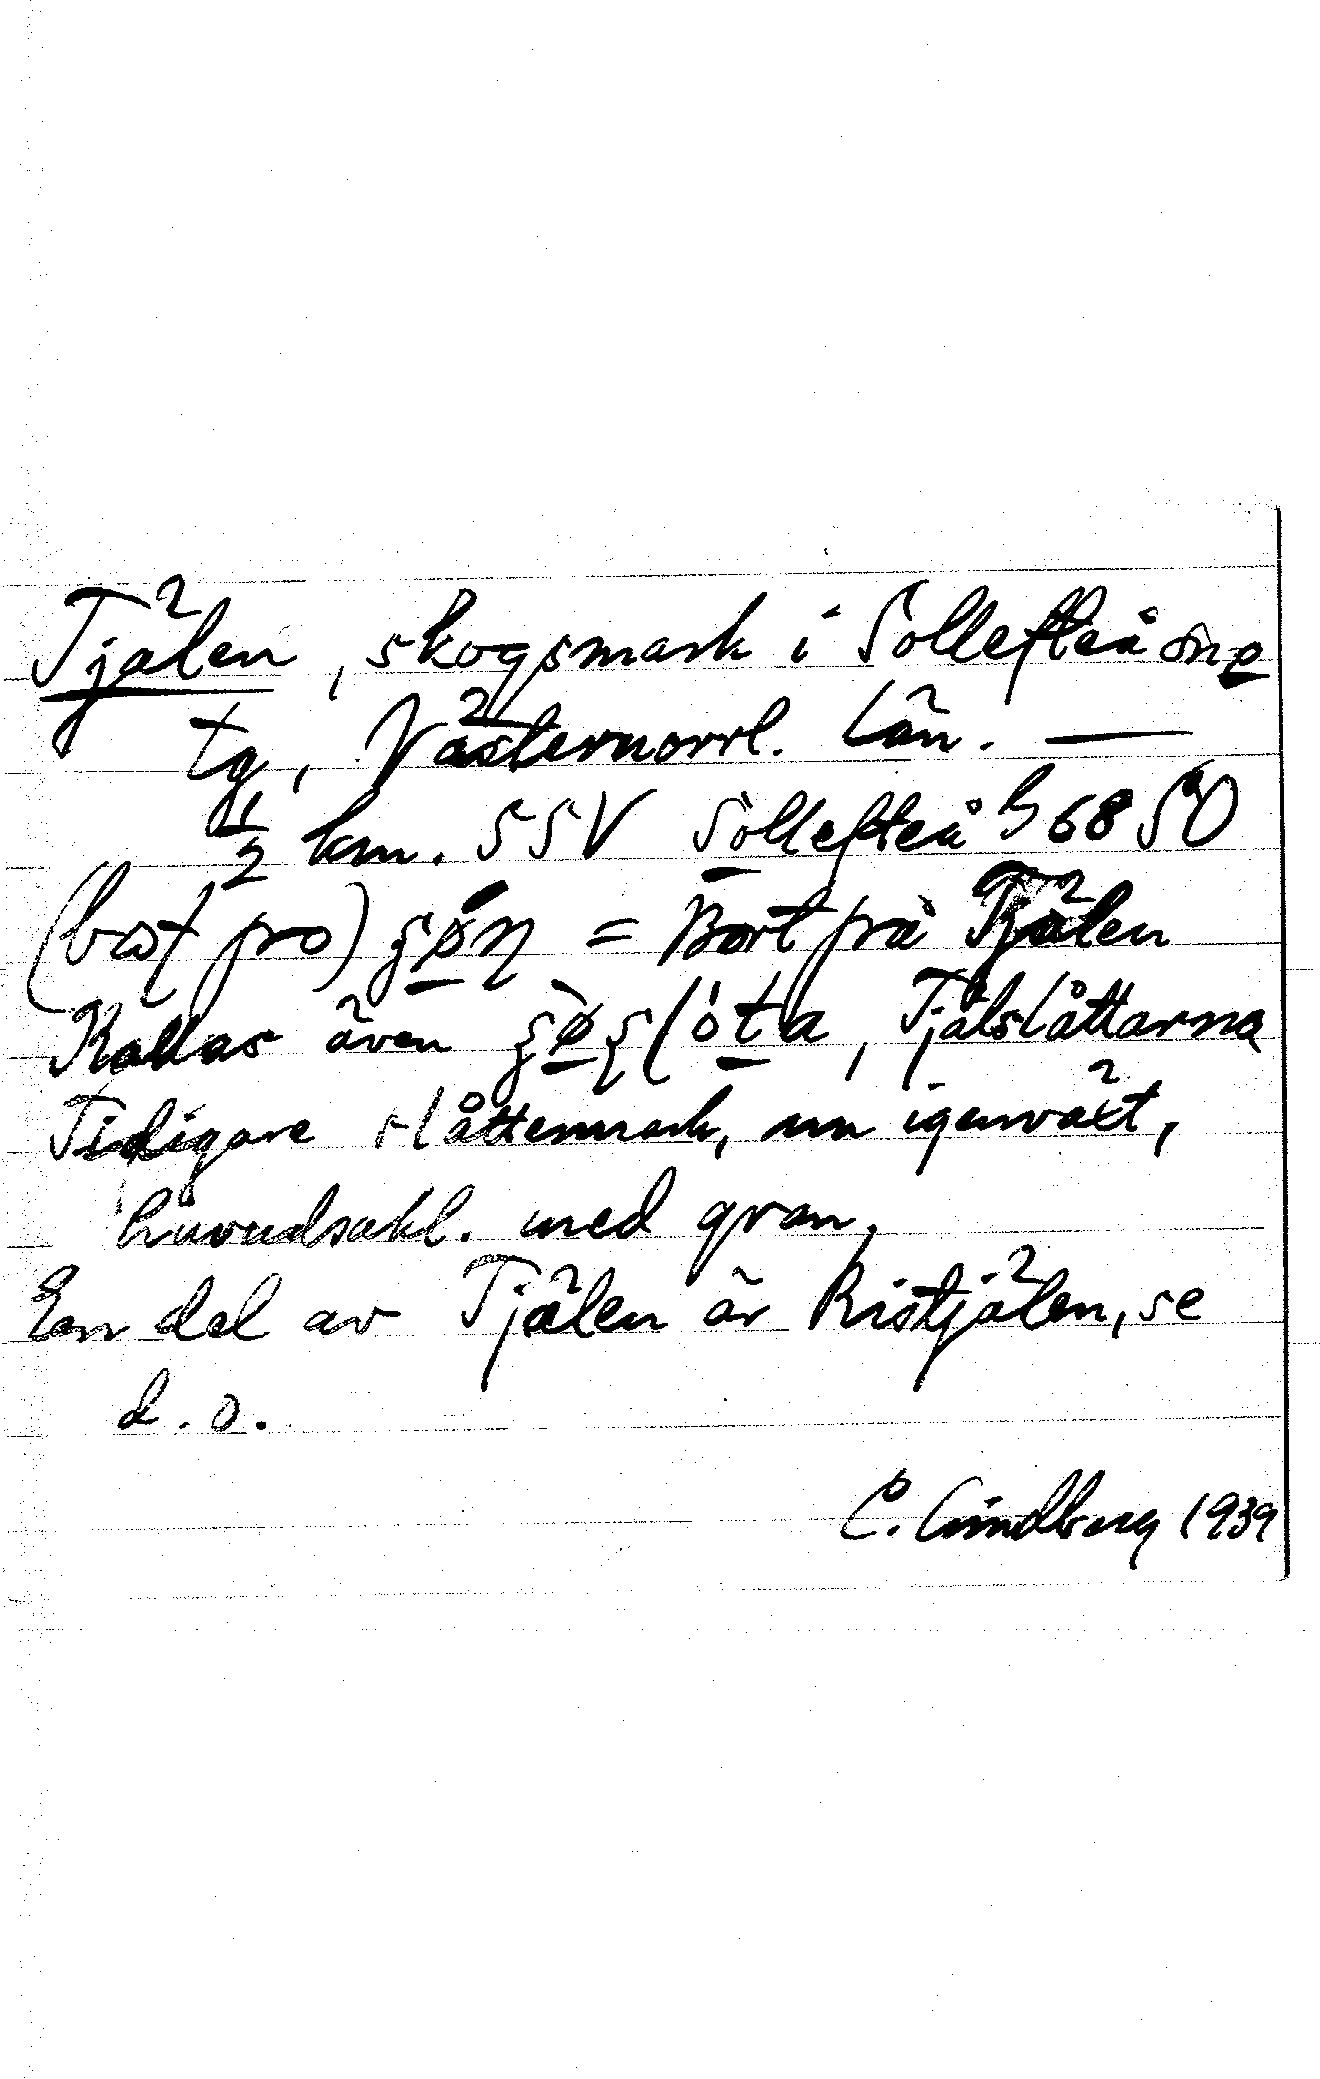 Tjälen, skogsmark i Sollefteå sn
tg, Västernorrl. län. —
1/2 km. SSV Sollefteå 968 SO
= Bort frå Tjälen
Kallas även , Tjälslåttarna
Tidigare slåttermark, nu igenväxt,
huvudsakl. med gran.
En del av Tjälen är Ristjälen, se
d. o.
C. Lindberg 1939